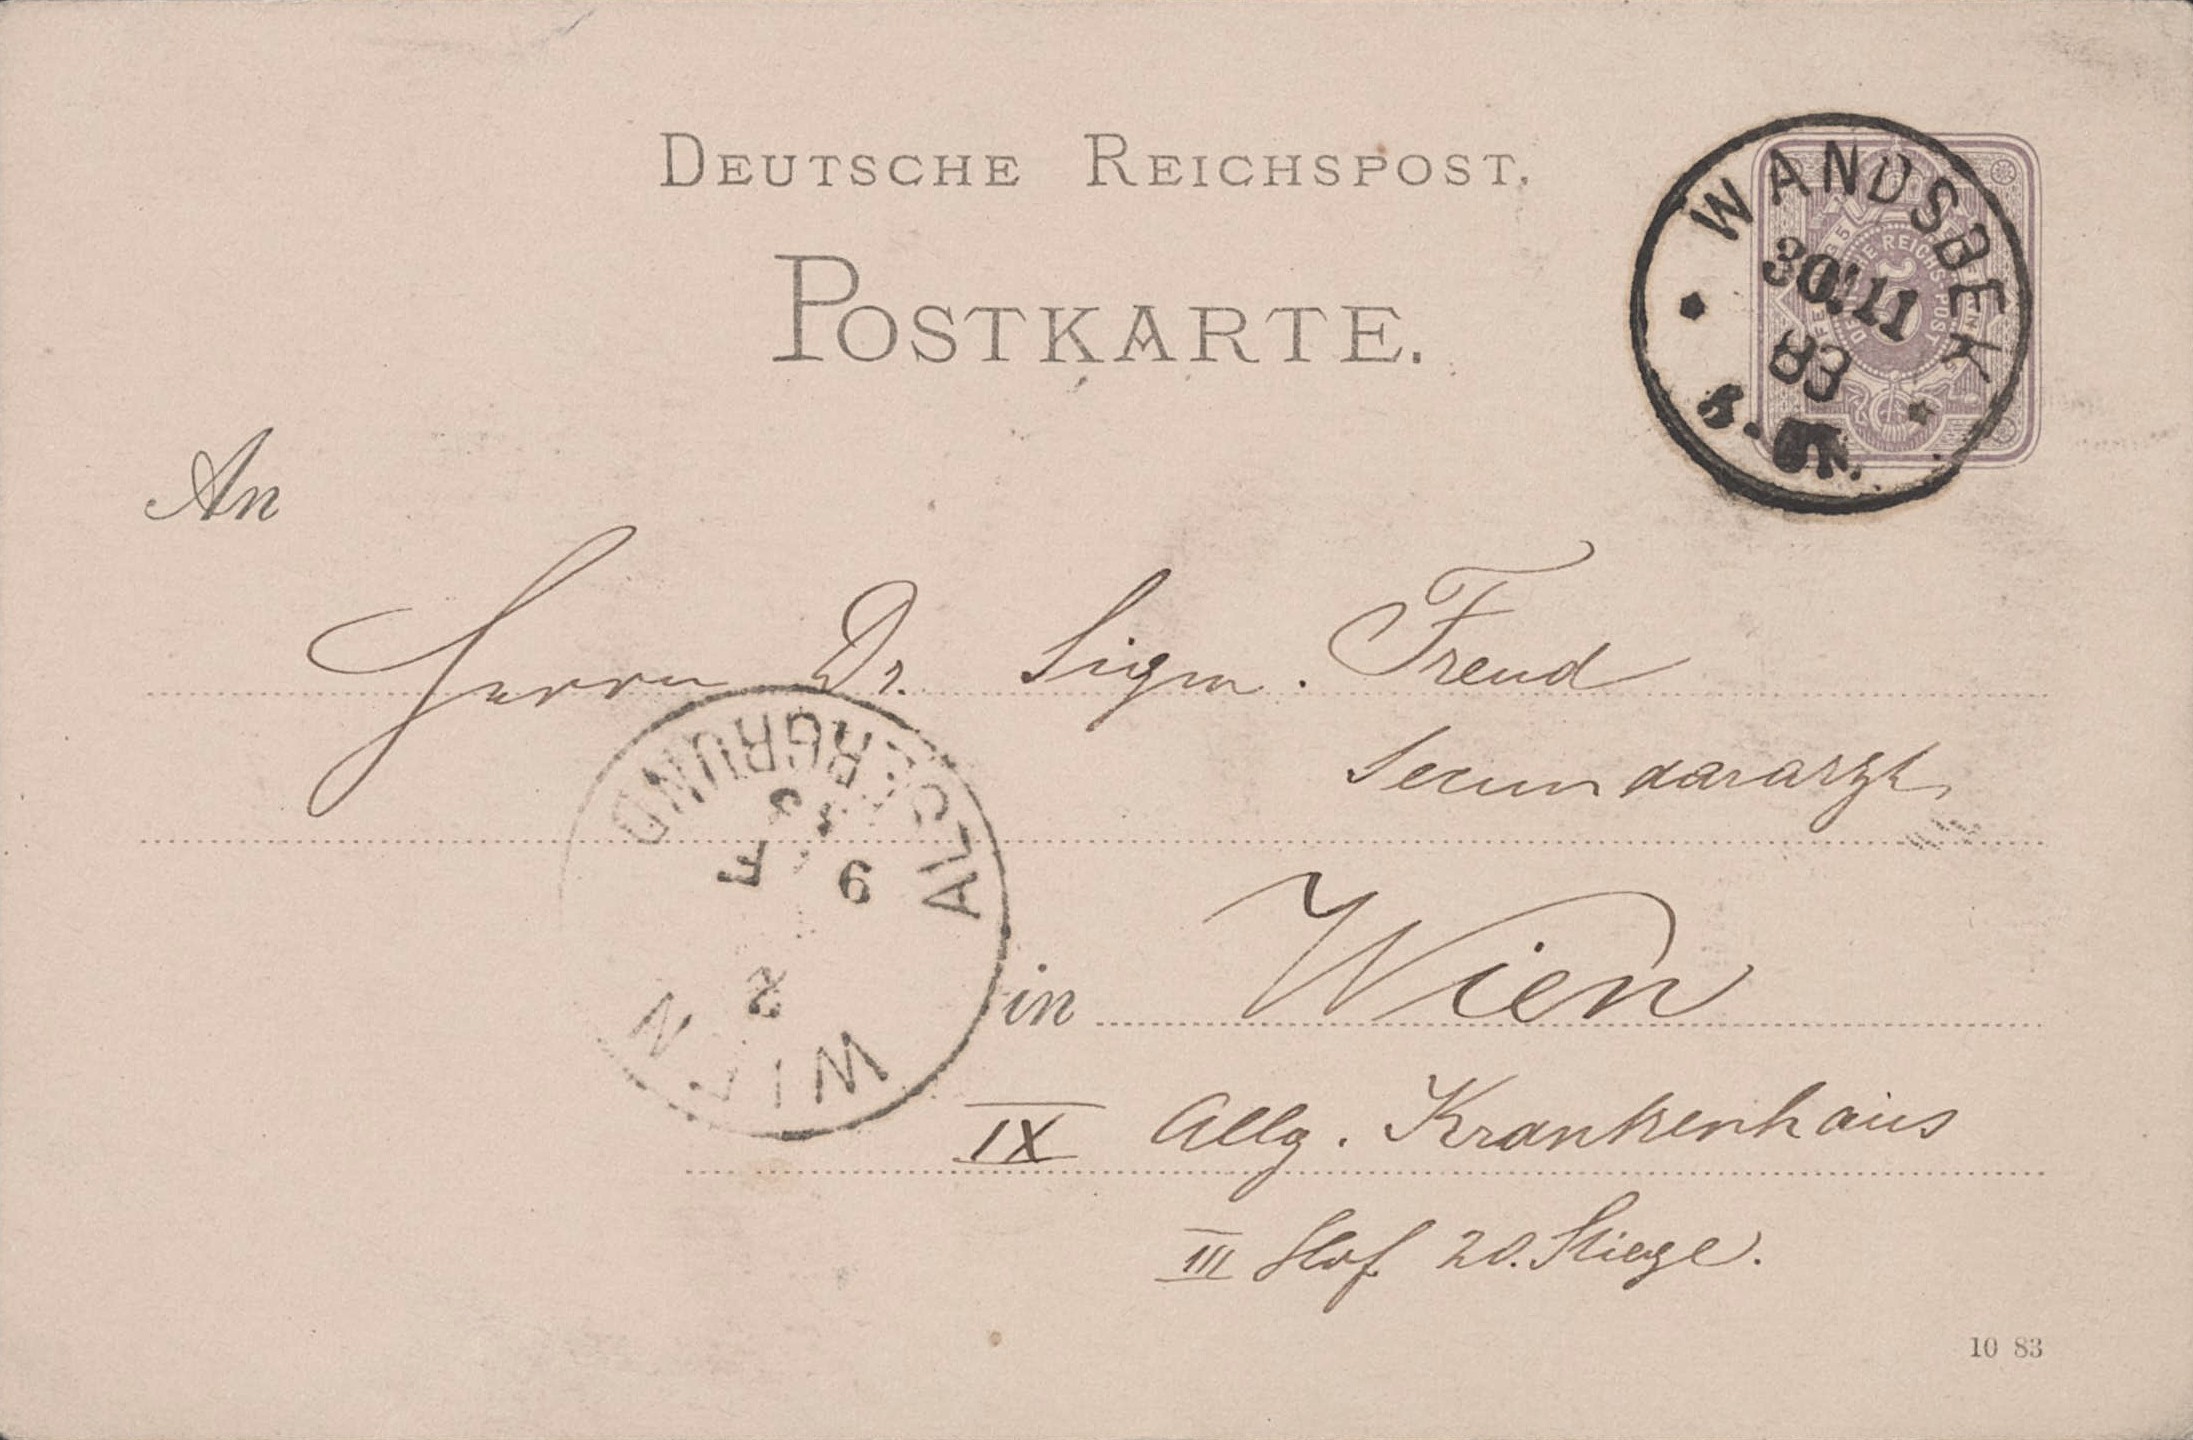 DEUTSCHE REICHSPOST.
POSTKARTE.
WANDSBEK
30/11
83
5 PFENNIG
DEUTSCHE REICHS-POST
An
Herrn Dr. Sigm. Freud
Secundararzt
ALSERGRUND
9 F
WIEN
in Wien
IX Allg. Krankenhaus
III Hof 20. Stiege.
10 83